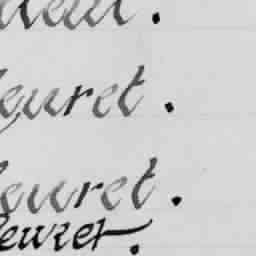 euret.
euret.
euret.